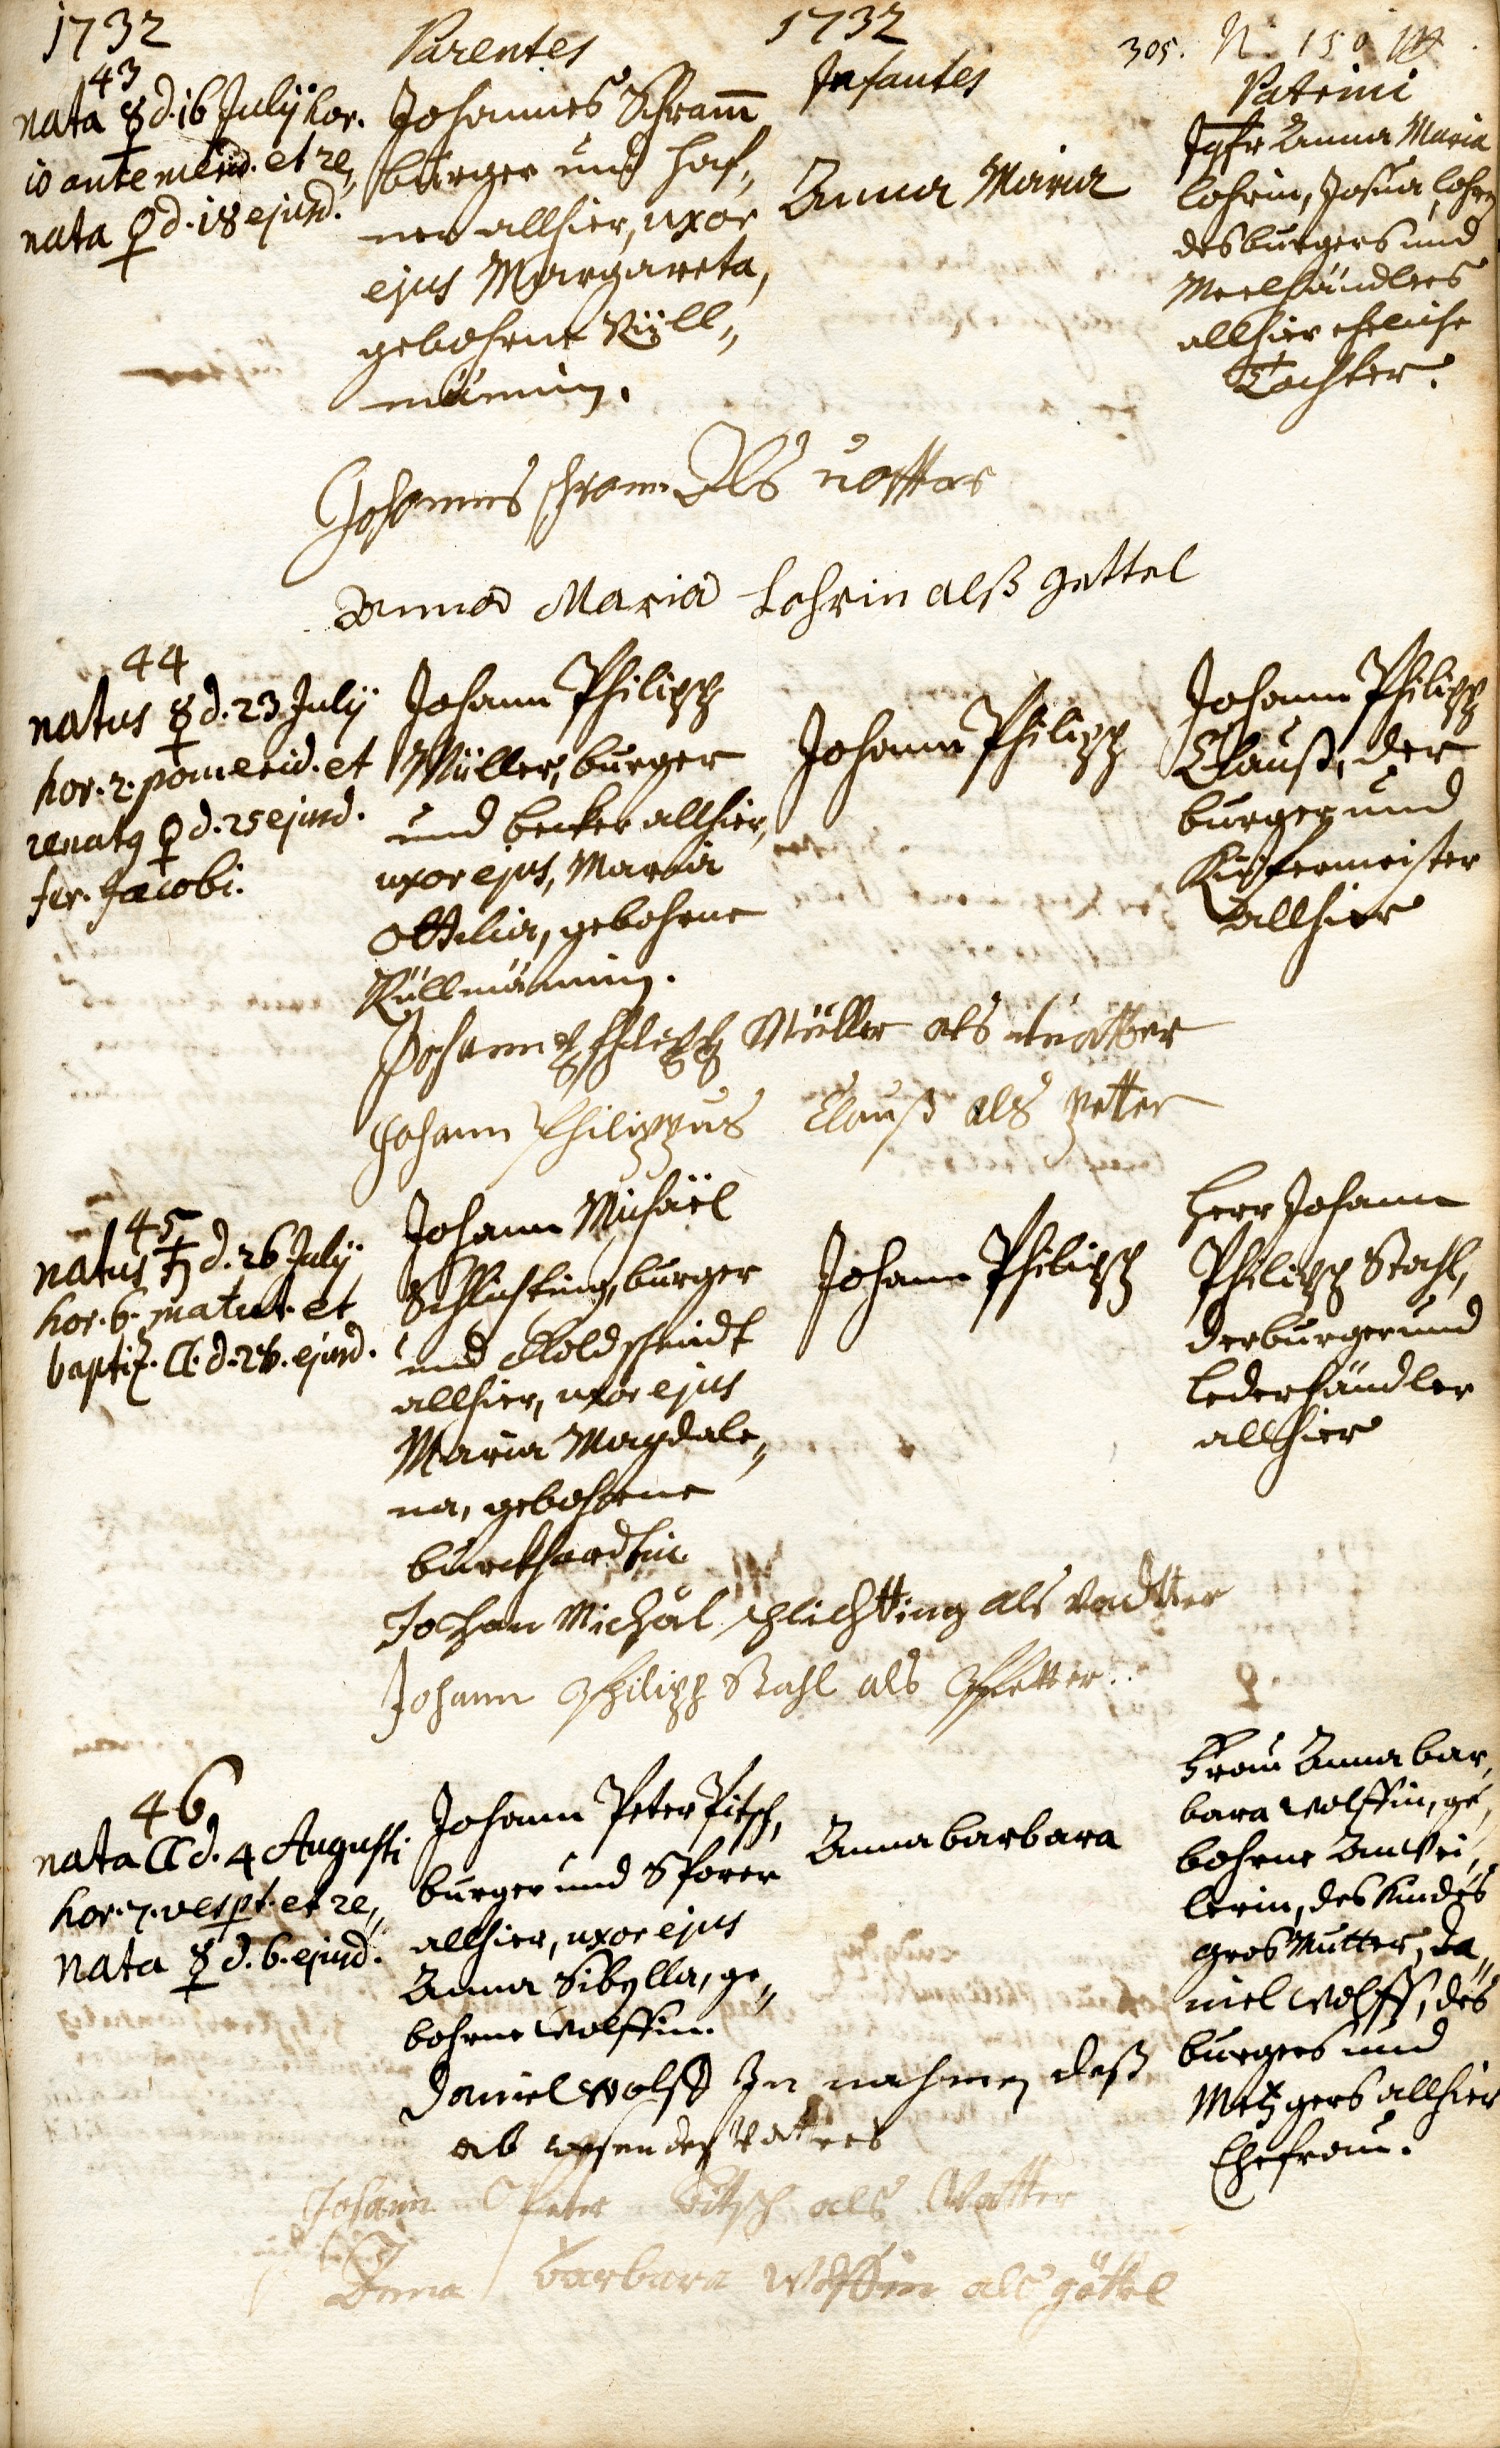 1732
Parentes
1732
Infantes
305. N. 150
Patrini
43
nata ☿ d. 16 Julij hor.
10 antemerid. et re„
nata ♀ d. 18 ejusd.
Johannes Schram̄
burger und Haf„
ner allhier, uxor
ejus Margareta,
gebohrne Rüll„
männin.
Anna Maria
Jgfr Anna Maria
Lohrin, Josua Lohrs
des burgers und
Meelhändlers
allhier eheliche
Tochter.
Johannes schram Als vatter
Anna Maria Lohrin alß gettel
44
natus ☿ d. 23. Julij
hor. 2. pomerid. et
renatq ♀ d. 25 ejusd.
fer. Jacobi.
Johann Philipp
Müller, burger
und becker allhier,
uxor ejus, Maria
Ottilia, gebohrne
Rüllmännin.
Johann Philipp
Johann Philipp
Clauß, der
burger und
Küfermeister
allhier
Johann Philipp Müller als vatter
Johann Philippus Clauß als petter
45
natus ♄ d. 26 Julij
hor. 6. matut. et
baptiz. ☾ d. 28. ejusd.
Johann Michäel
Schlichting, burger
und Goldschmidt
allhier, uxor ejus
Maria Magdale„
na, gebohrne
burckhardtin
Johann Philipp
Herr Johann
Philipp Stahl,
der burger und
Lederhändler
allhier
Johan Michäl schlichtting als vadtter
Johann Philipp Stahl als Pfetter.
46
nata ☾ d. 4 Augusti
hor. 7. vespt. et re„
nata ☿ d. 6. ejusd.
Johann Peter Pitsch,
burger und Sporer
allhier, uxor ejus
Anna Sibylla, ge„
bohrne Wolffin.
Anna barbara
Frau Anna bar„
bara Wolffin, ge„
bohrne Anwei„
lerin, des Kindes
gros Mutter, Da„
niel Wolff, des
burgers und
Metzgers allhier
Ehefrau.
Daniel Wolff In nahmen deß
ab wesenden Vatters
Johann Peter Bitsch als Vatter
Anna barbara Wolffin als göttel